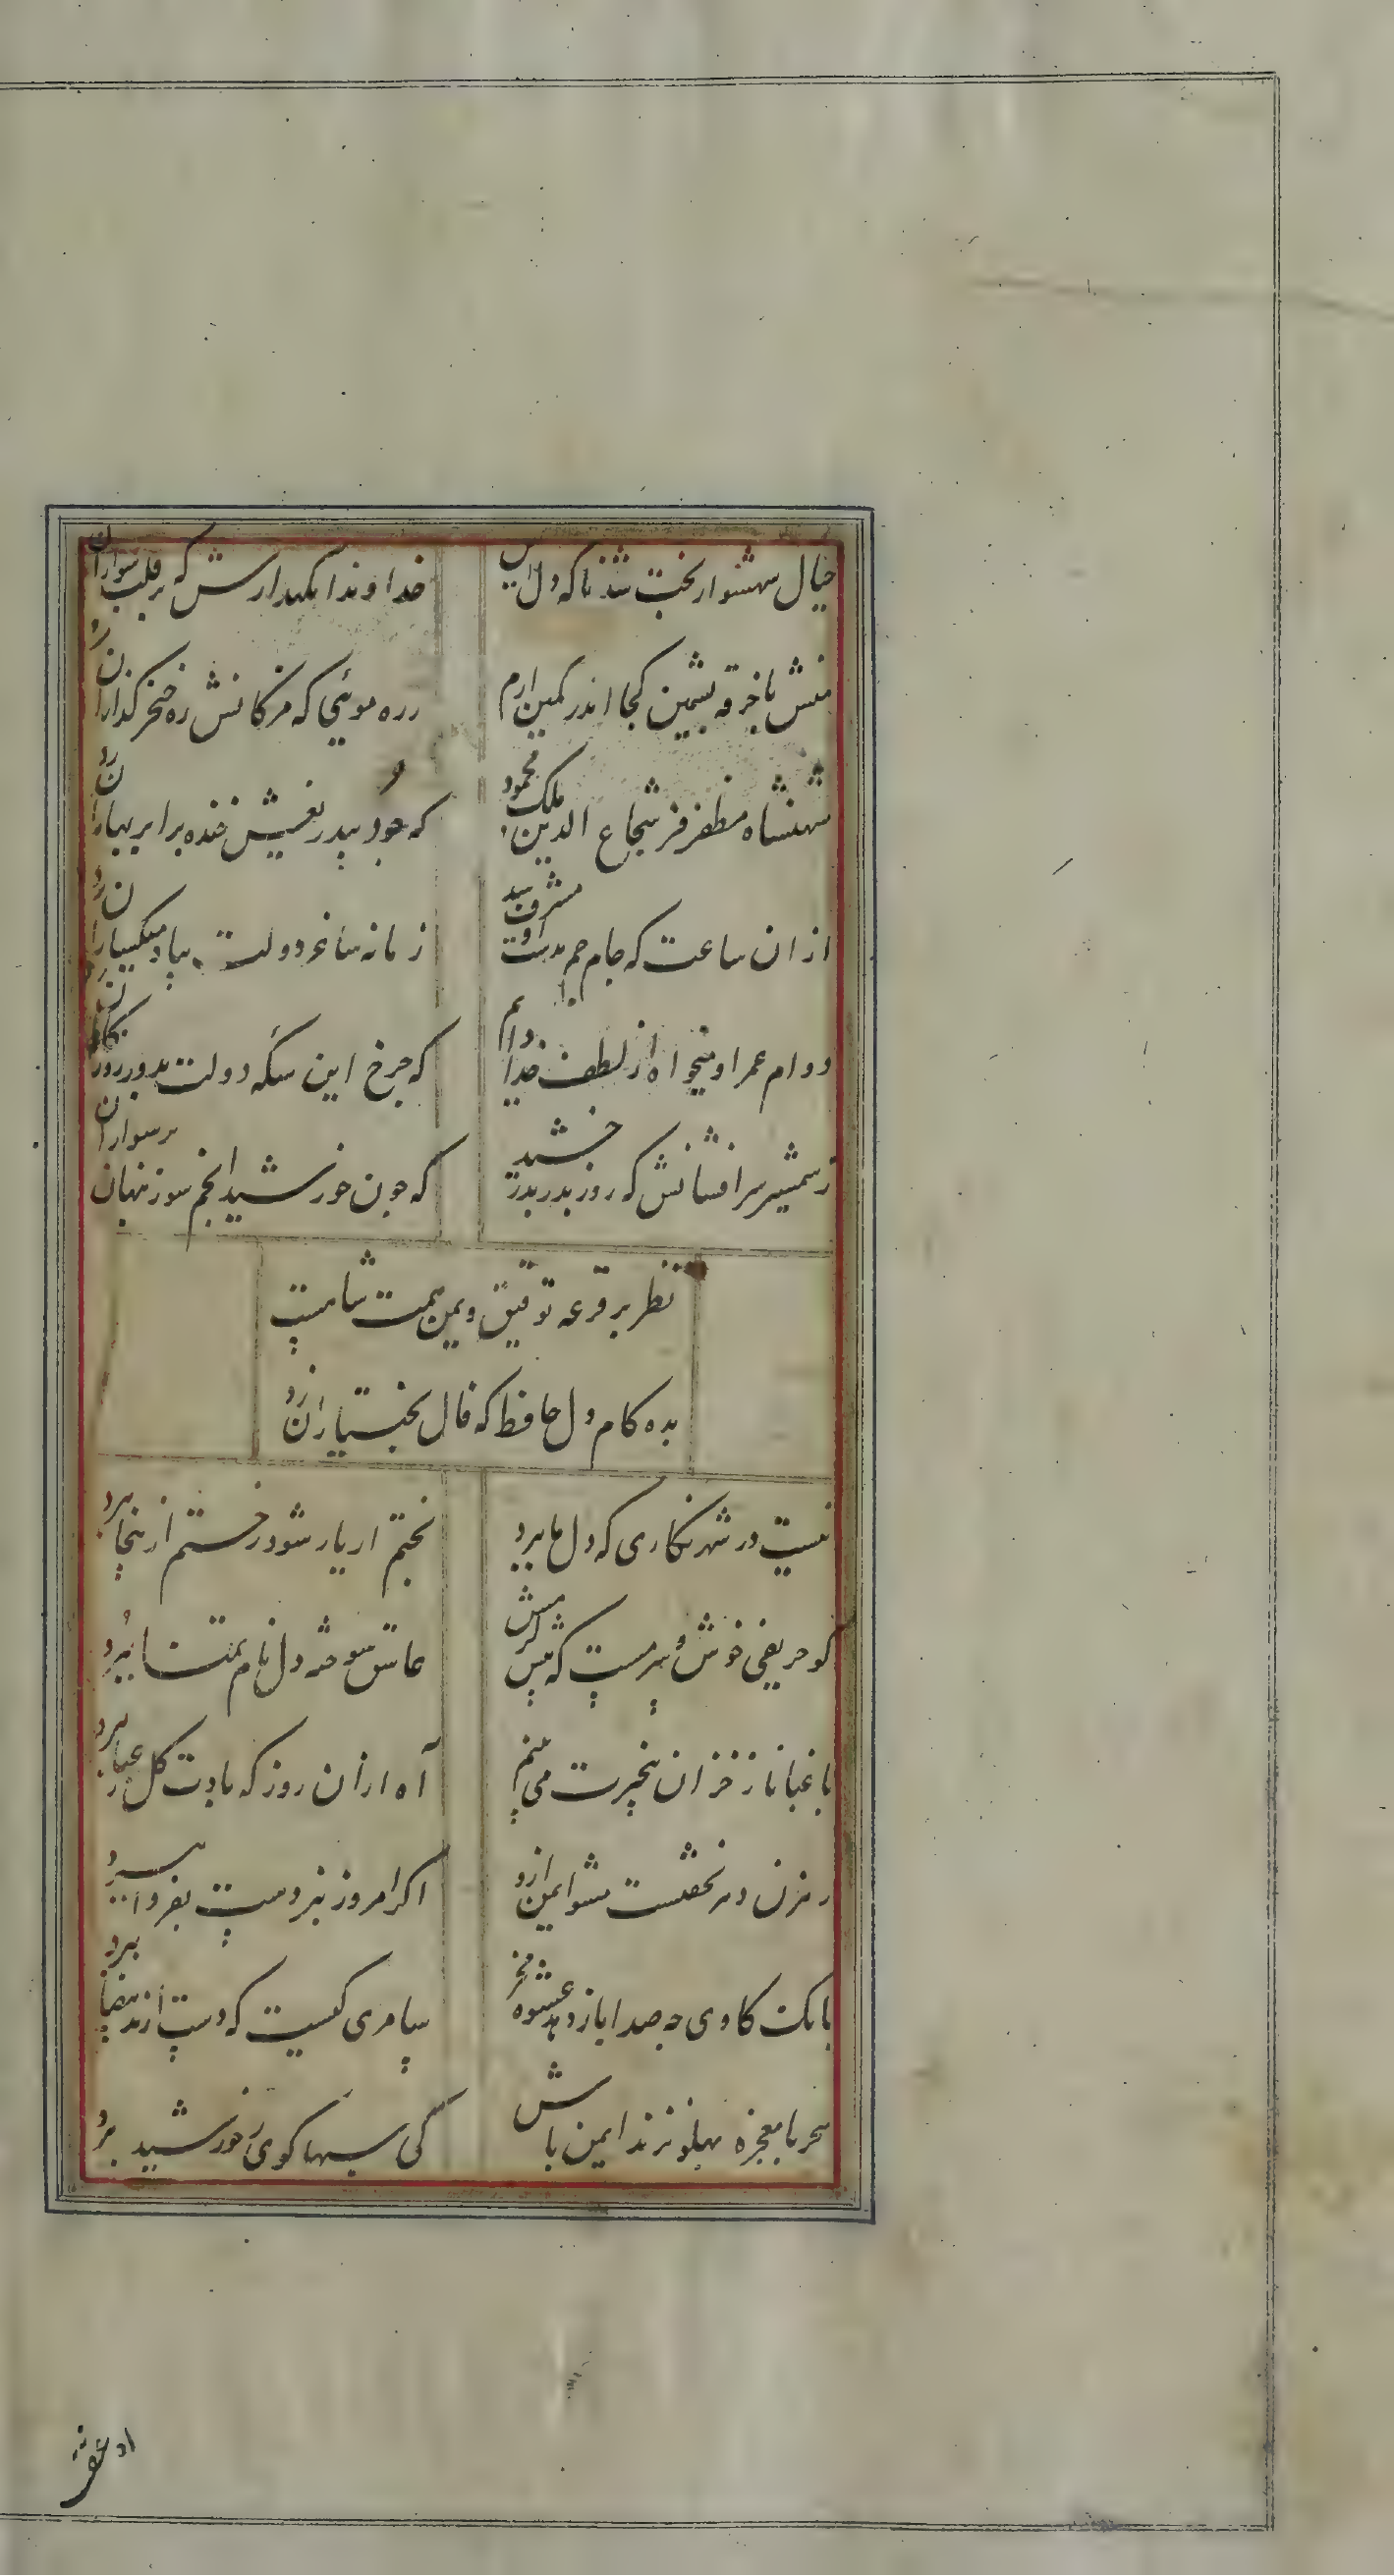 خیال شهسواری پخت شد ناکه دل مسکین
خداوندا نکهدارش که بر قلب سواران زد
منش با خرقه پشمین کجا اندر کمین ارم
زره موئی که مژکانش ره خنجر کذاران زد
شهنشاه مظفر فر شجاع الدین ملک محمود
که جود بیدریغش خنده بر ابر بهاران زد
از ان ساعت که جام می بدست او مشرف شد
زمانه ساغر دولت بیاد میکساران زد
دوام عمر او میخواه از لطف خدا دایم
که چرخ این سکه دولت بدور روزکاران زد
ز شمشیر سرافشانش که روز بدر بدرخشید
که چون خورشید انجم سوز تنها بر سواران
نظر بر قرعه توفیق و یمن همت شاهست
بده کام دل حافظ که فال بختیاران زد
نیست در شهر نکاری که دل ما ببرد
بختم ار یار شود رختم از ینجا ببرد
کو حریفی خوش و سرمست که پیش کرمش
عاشق سوخته دل نام تمنا ببرد
باغبانا ز خزان بیخبرت می بینم
آه از ان روز که بادت کل رعنا ببرد
رهزن دهر نخفتست مشو ایمن ازو
اکر امروز نبردست بفردا ببرد
بانک کاوی چه صدا باز دهد عشوه مخر
سامری کیست که دست از ید بیضا ببرد
سحر با معجزه پهلو نزند ایمن باش
کی سها کوی ز خورشید برد